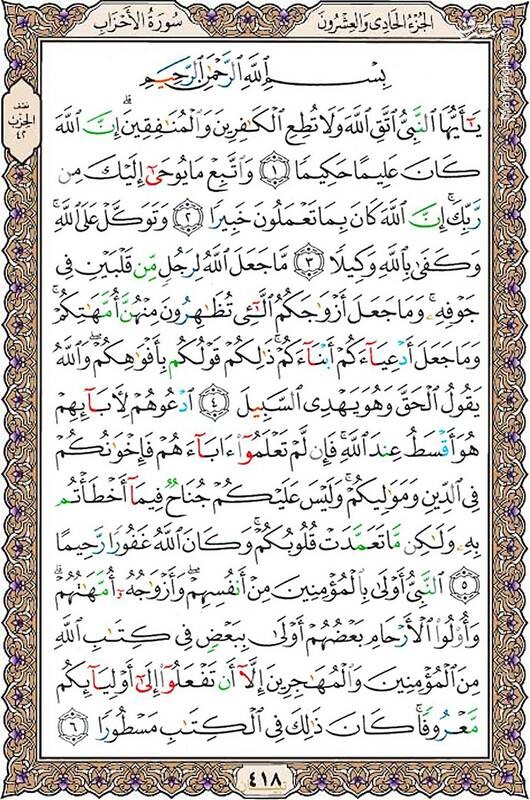 سُورَةُ ٱلْأَحْزَابِ
الجُزءُ الحَادِى وَالعِشْرُونَ
نصف
الحزب
٤٢
بِسْمِ ٱللَّهِ ٱلرَّحْمَٰنِ ٱلرَّحِيمِ
يَـٰٓأَيُّهَا ٱلنَّبِىُّ ٱتَّقِ ٱللَّهَ وَلَا تُطِعِ ٱلْكَـٰفِرِينَ وَٱلْمُنَـٰفِقِينَ ۗ إِنَّ ٱللَّهَ
كَانَ عَلِيمًا حَكِيمًا ﴿١﴾ وَٱتَّبِعْ مَا يُوحَىٰٓ إِلَيْكَ مِن
رَّبِّكَ ۚ إِنَّ ٱللَّهَ كَانَ بِمَا تَعْمَلُونَ خَبِيرًا ﴿٢﴾ وَتَوَكَّلْ عَلَى ٱللَّهِ ۚ
وَكَفَىٰ بِٱللَّهِ وَكِيلًا ﴿٣﴾ مَّا جَعَلَ ٱللَّهُ لِرَجُلٍ مِّن قَلْبَيْنِ فِى
جَوْفِهِۦ ۚ وَمَا جَعَلَ أَزْوَٰجَكُمُ ٱلَّـٰٓـِٔى تُظَـٰهِرُونَ مِنْهُنَّ أُمَّهَـٰتِكُمْ ۚ
وَمَا جَعَلَ أَدْعِيَآءَكُمْ أَبْنَآءَكُمْ ۚ ذَٰلِكُمْ قَوْلُكُم بِأَفْوَٰهِكُمْ ۖ وَٱللَّهُ
يَقُولُ ٱلْحَقَّ وَهُوَ يَهْدِى ٱلسَّبِيلَ ﴿٤﴾ ٱدْعُوهُمْ لِـَٔابَآئِهِمْ
هُوَ أَقْسَطُ عِندَ ٱللَّهِ ۚ فَإِن لَّمْ تَعْلَمُوٓا۟ ءَابَآءَهُمْ فَإِخْوَٰنُكُمْ
فِى ٱلدِّينِ وَمَوَٰلِيكُمْ ۚ وَلَيْسَ عَلَيْكُمْ جُنَاحٌ فِيمَآ أَخْطَأْتُم
بِهِۦ وَلَـٰكِن مَّا تَعَمَّدَتْ قُلُوبُكُمْ ۚ وَكَانَ ٱللَّهُ غَفُورًا رَّحِيمًا
﴿٥﴾ ٱلنَّبِىُّ أَوْلَىٰ بِٱلْمُؤْمِنِينَ مِنْ أَنفُسِهِمْ ۖ وَأَزْوَٰجُهُۥٓ أُمَّهَـٰتُهُمْ ۗ
وَأُو۟لُوا۟ ٱلْأَرْحَامِ بَعْضُهُمْ أَوْلَىٰ بِبَعْضٍ فِى كِتَـٰبِ ٱللَّهِ
مِنَ ٱلْمُؤْمِنِينَ وَٱلْمُهَـٰجِرِينَ إِلَّآ أَن تَفْعَلُوٓا۟ إِلَىٰٓ أَوْلِيَآئِكُم
مَّعْرُوفًا ۚ كَانَ ذَٰلِكَ فِى ٱلْكِتَـٰبِ مَسْطُورًا ﴿٦﴾
٤١٨